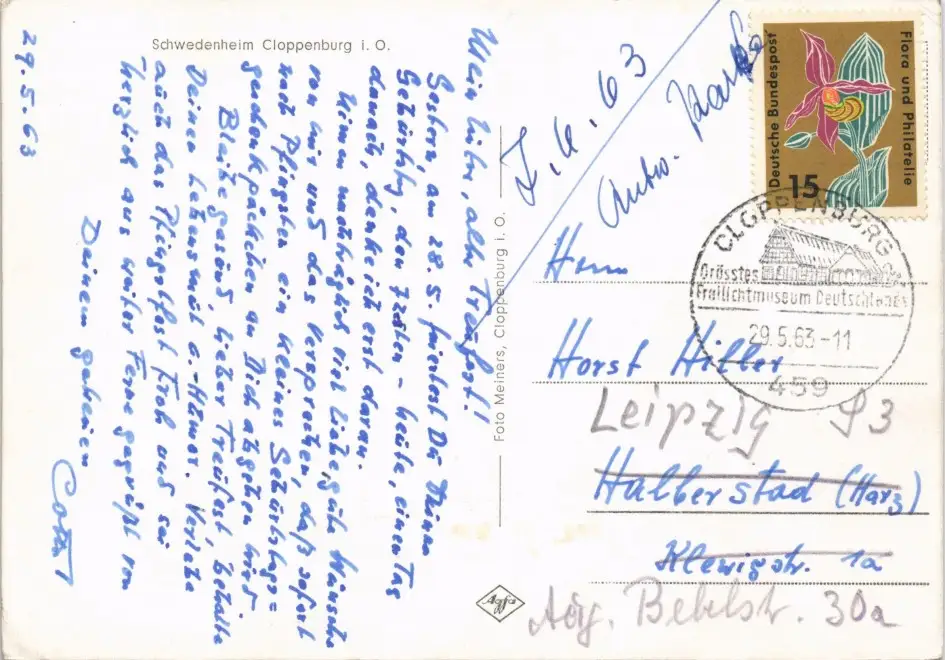 Schwedenheim Cloppenburg i. O.
29.5.63
Mein lieber, alter Treufast!!
Gestern, am 28. 5. feiertest Du Deinen
Geburtstag, den - heute, einen Tag
danach, denke ich erst daran.
Nimm nachträglich viel liebe, gute Wünsche
von mir und das Versprechen, daß sofort
nach Pfingsten ein kleines Geburtstags=
gedenkpäckchen an Dich abgehen wird.
Bleibe gesund, lieber Treufast, behalte
Deinen Lebensmut u. -Humor. Verlebe
auch das Pfingstfest froh und sei
herzlich aus weiter Ferne gegrüßt von
Deinem getreuen
Foto Meiners, Cloppenburg i. O.
Agfa
7.6.63
Antw. Karte
Flora und Philatelie
Deutsche Bundespost
15
CLOPPENBURG
Grösstes
Freilichtmuseum Deutschlands
29.5.63-11
459
Herrn
Horst Hiller
Leipzig S3
Halberstad (Harz)
Klewigstr. 1a
Aug. Bebelstr. 30a